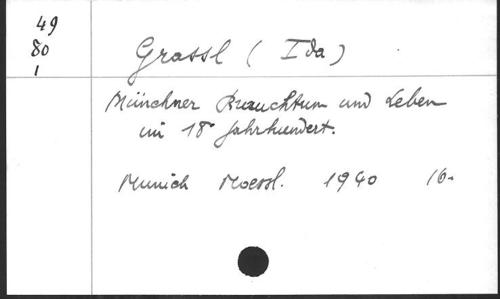 49
80
1
Grassl (Ida)
Münchner Brauchtum und Leben
im 18e Jahrhundert.
Munich Moessl. 1940 16-